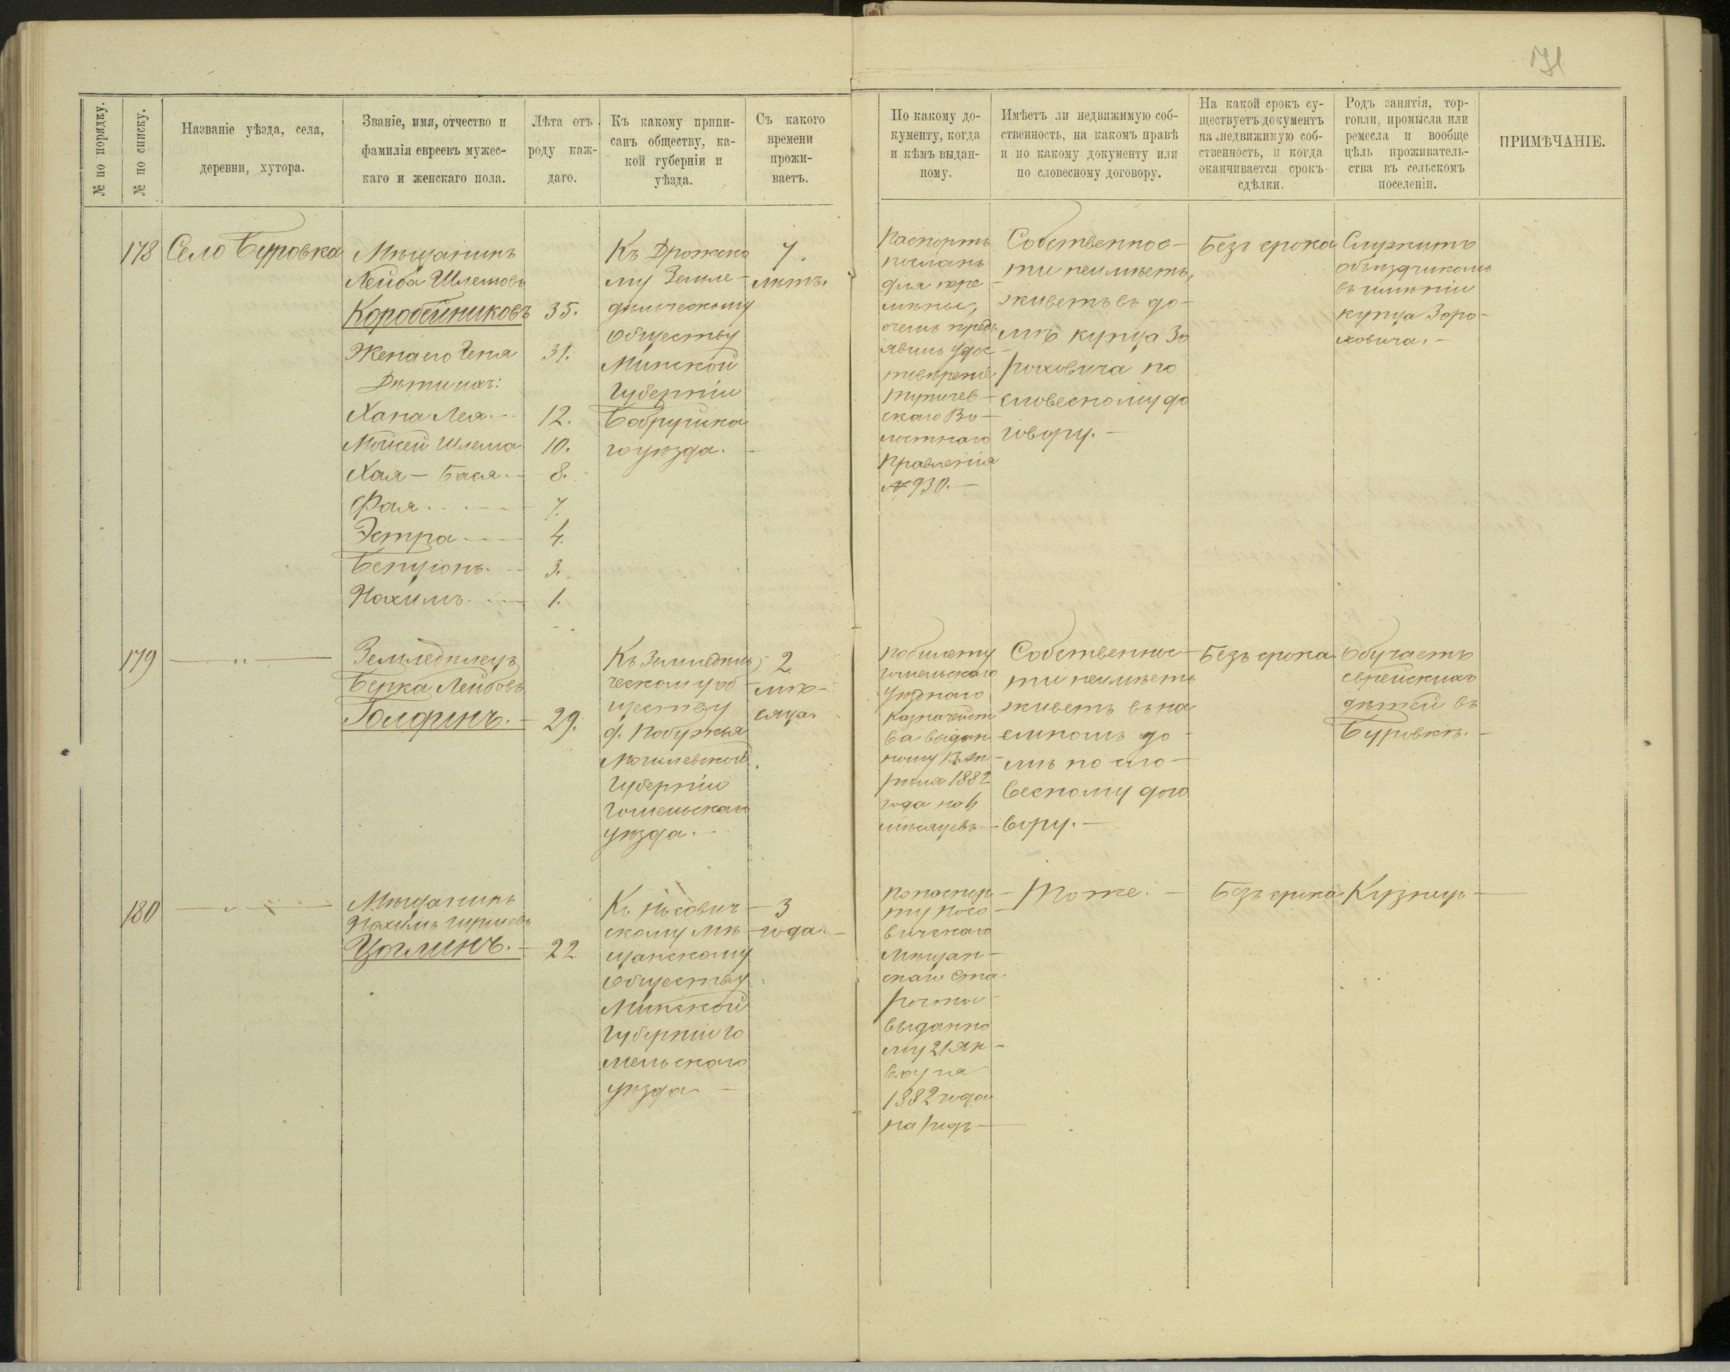 171
№ по порядку.
№ по списку.
Названіе уѣзда, села,
деревни, хутора.
Званіе, имя, отчество и
фамилія евреевъ мужес-
каго и женскаго пола.
Лѣта отъ
роду каж-
даго.
Къ какому припи-
санъ обществу, ка-
кой губерніи и
уѣзда.
Съ какого
времени
прожи-
ваетъ.
По какому до-
кументу, когда
и кѣмъ выдан-
ному.
Имѣетъ ли недвижимую соб-
ственность, на какомъ правѣ
и по какому документу или
по словесному договору.
На какой срокъ су-
ществуетъ документъ
на недвижимую соб-
ственность, и когда
оканчивается срокъ
сдѣлки.
Родъ занятія, тор-
говли, промысла или
ремесла и вообще
цѣль проживатель-
ства въ сельскомъ
поселеніи.
ПРИМѢЧАНІЕ.
178
Село Буровка
Мѣщанинъ
Лейба Шлемовъ
Коробейниковъ 35.
Жена его Геня 31.
Дѣти ихъ:
Хана Лея 12.
Мовсей Шлема 10.
Хая - Бася 8.
Фая 7.
Эстра 4.
Бенціонъ 3.
Нохимъ 1.
Къ Дрожено
му Земле-
дѣльческому
обществу
Минской
Губерніи
Бобруйска
го уѣзда.
7.
лѣтъ.
Паспортъ
посланъ
для пере-
мѣны,
о чемъ предъ
явилъ удос-
товѣреніе
Тупичев-
скаго Во-
лостнаго
Правленія
№ 930.
Собственнос-
ти неимѣетъ,
живетъ въ до-
мѣ купца Зо
роховича по
словесному до
говору.
Безъ срока
Служитъ
объѣздчикомъ
въ имѣніи
купца Зоро-
ховича.
179
Земледѣлецъ
Берка Лейбовъ
Голфинъ. 29.
Къ Земледѣль
ческому об
ществу
д. Побужья
Могилевской
Губерніи
Гомельскаго
уѣзда.
2
мѣ-
сяца.
По билету
Гомельскаго
Уѣзднаго
Казначейст
ва выдан
ному
рѣля 1882
года на 6
мѣсяцевъ
Собственнос
ти неимѣетъ
живетъ въ на
емномъ до-
мѣ по сло-
весному дого
вору.
Безъ срока
Обучаетъ
еврейскихъ
дѣтей въ
Буровкѣ.
180
Мѣщанинъ
Нохимъ Гиршовъ
Цоглинъ. 22
Къ Носович
скому мѣ
щанскому
обществу
Минской
Губерніи Го
мельскаго
уѣзда
3
года.
По паспор-
ту Носо-
вичскаго
Мѣщан-
скаго Ста
росты
выданно
му 21 Ян-
варя
1882 года
на годъ
Тоже.
Безъ срока
Кузнецъ